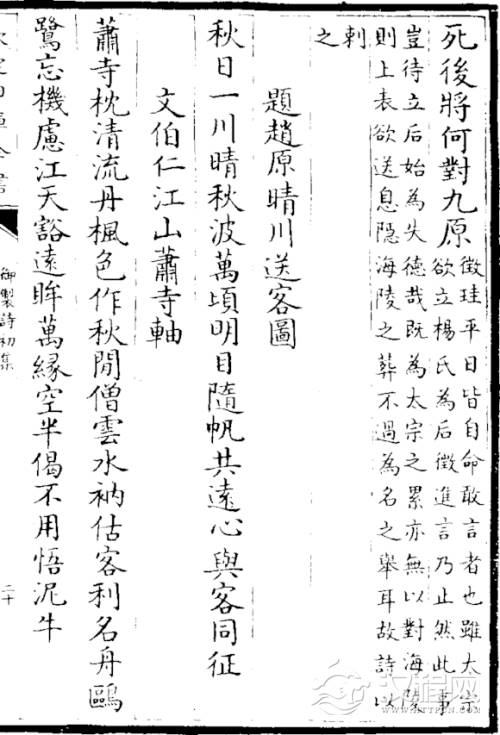 死後將何對九原
徵珪平日皆自命敢言者也雖太宗
欲立楊氏為后徵進言乃止然此事
豈待立后始為失德哉既為太宗之累亦無以對海陵
則上表欲送息隱海陵之葬不過為名之舉耳故詩以
刺
之
題趙原晴川送客圖
秋日一川晴秋波萬頃明目隨帆共遠心與客同征
文伯仁江山蕭寺軸
蕭寺枕清流丹楓色作秋閒僧雲水衲估客利名舟鷗
鷺忘機慮江天豁遠眸萬緣空半偈不用悟泥牛
御製詩初集
二十
汉程网